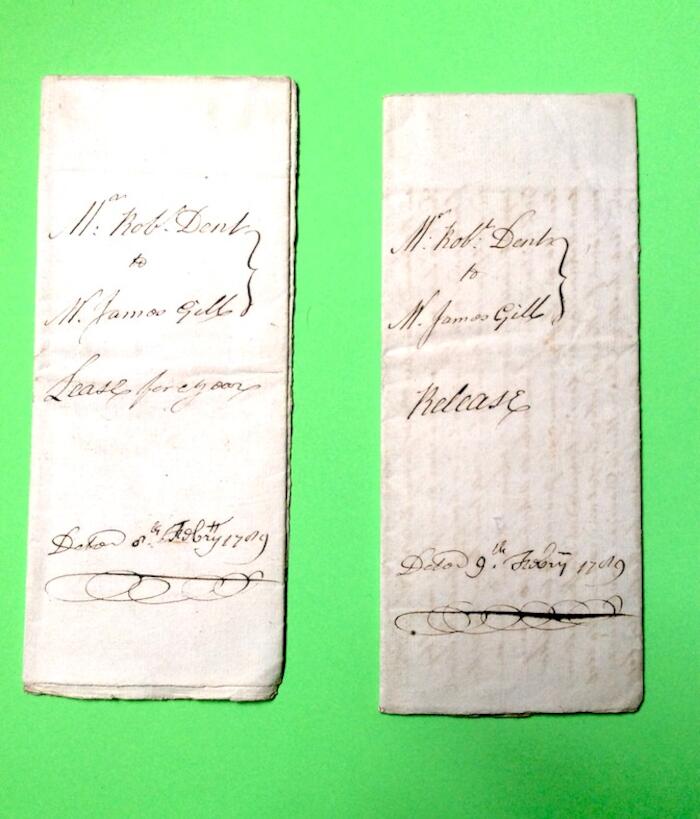 Mr. Robt. Dent
to
Mr. James Gill
Lease for a year
Dated 8th. Febry 1789
Mr. Robt. Dent
to
Mr. James Gill
Release
Dated 9th. Febry 1789